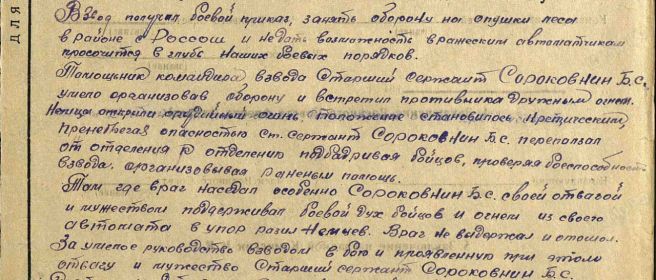 Взвод получил боевой приказ, занять оборону на опушки леса
в районе с Россош и не дать возможность вражеским автоматчикам
просочится в глубь наших боевых порядков.
Помощник командира взвода Старший сержант Сороковнин Б.С.
умело организовав оборону и встретил противника дружным огнем.
Немцы открыли орудийный огонь, положение становилось критическим,
пренебегая опасностью Ст. сержант Сороковнин Б.С. переползал
от отделения к отделению подбадривая бойцов, проверяя боеспособность
взвода, организовывая раненым помощь.
Там где враг наседал особенно Сороковнин Б.С. своей отвагой
и мужеством поддерживал боевой дух бойцов и огнем из своего
автомата в упор разил Немцев. Враг не выдержал и отошел.
За умелое руководство взводом в бою и проявленную при этом
отвагу и мужество Старший сержант Сороковнин Б.С.
для